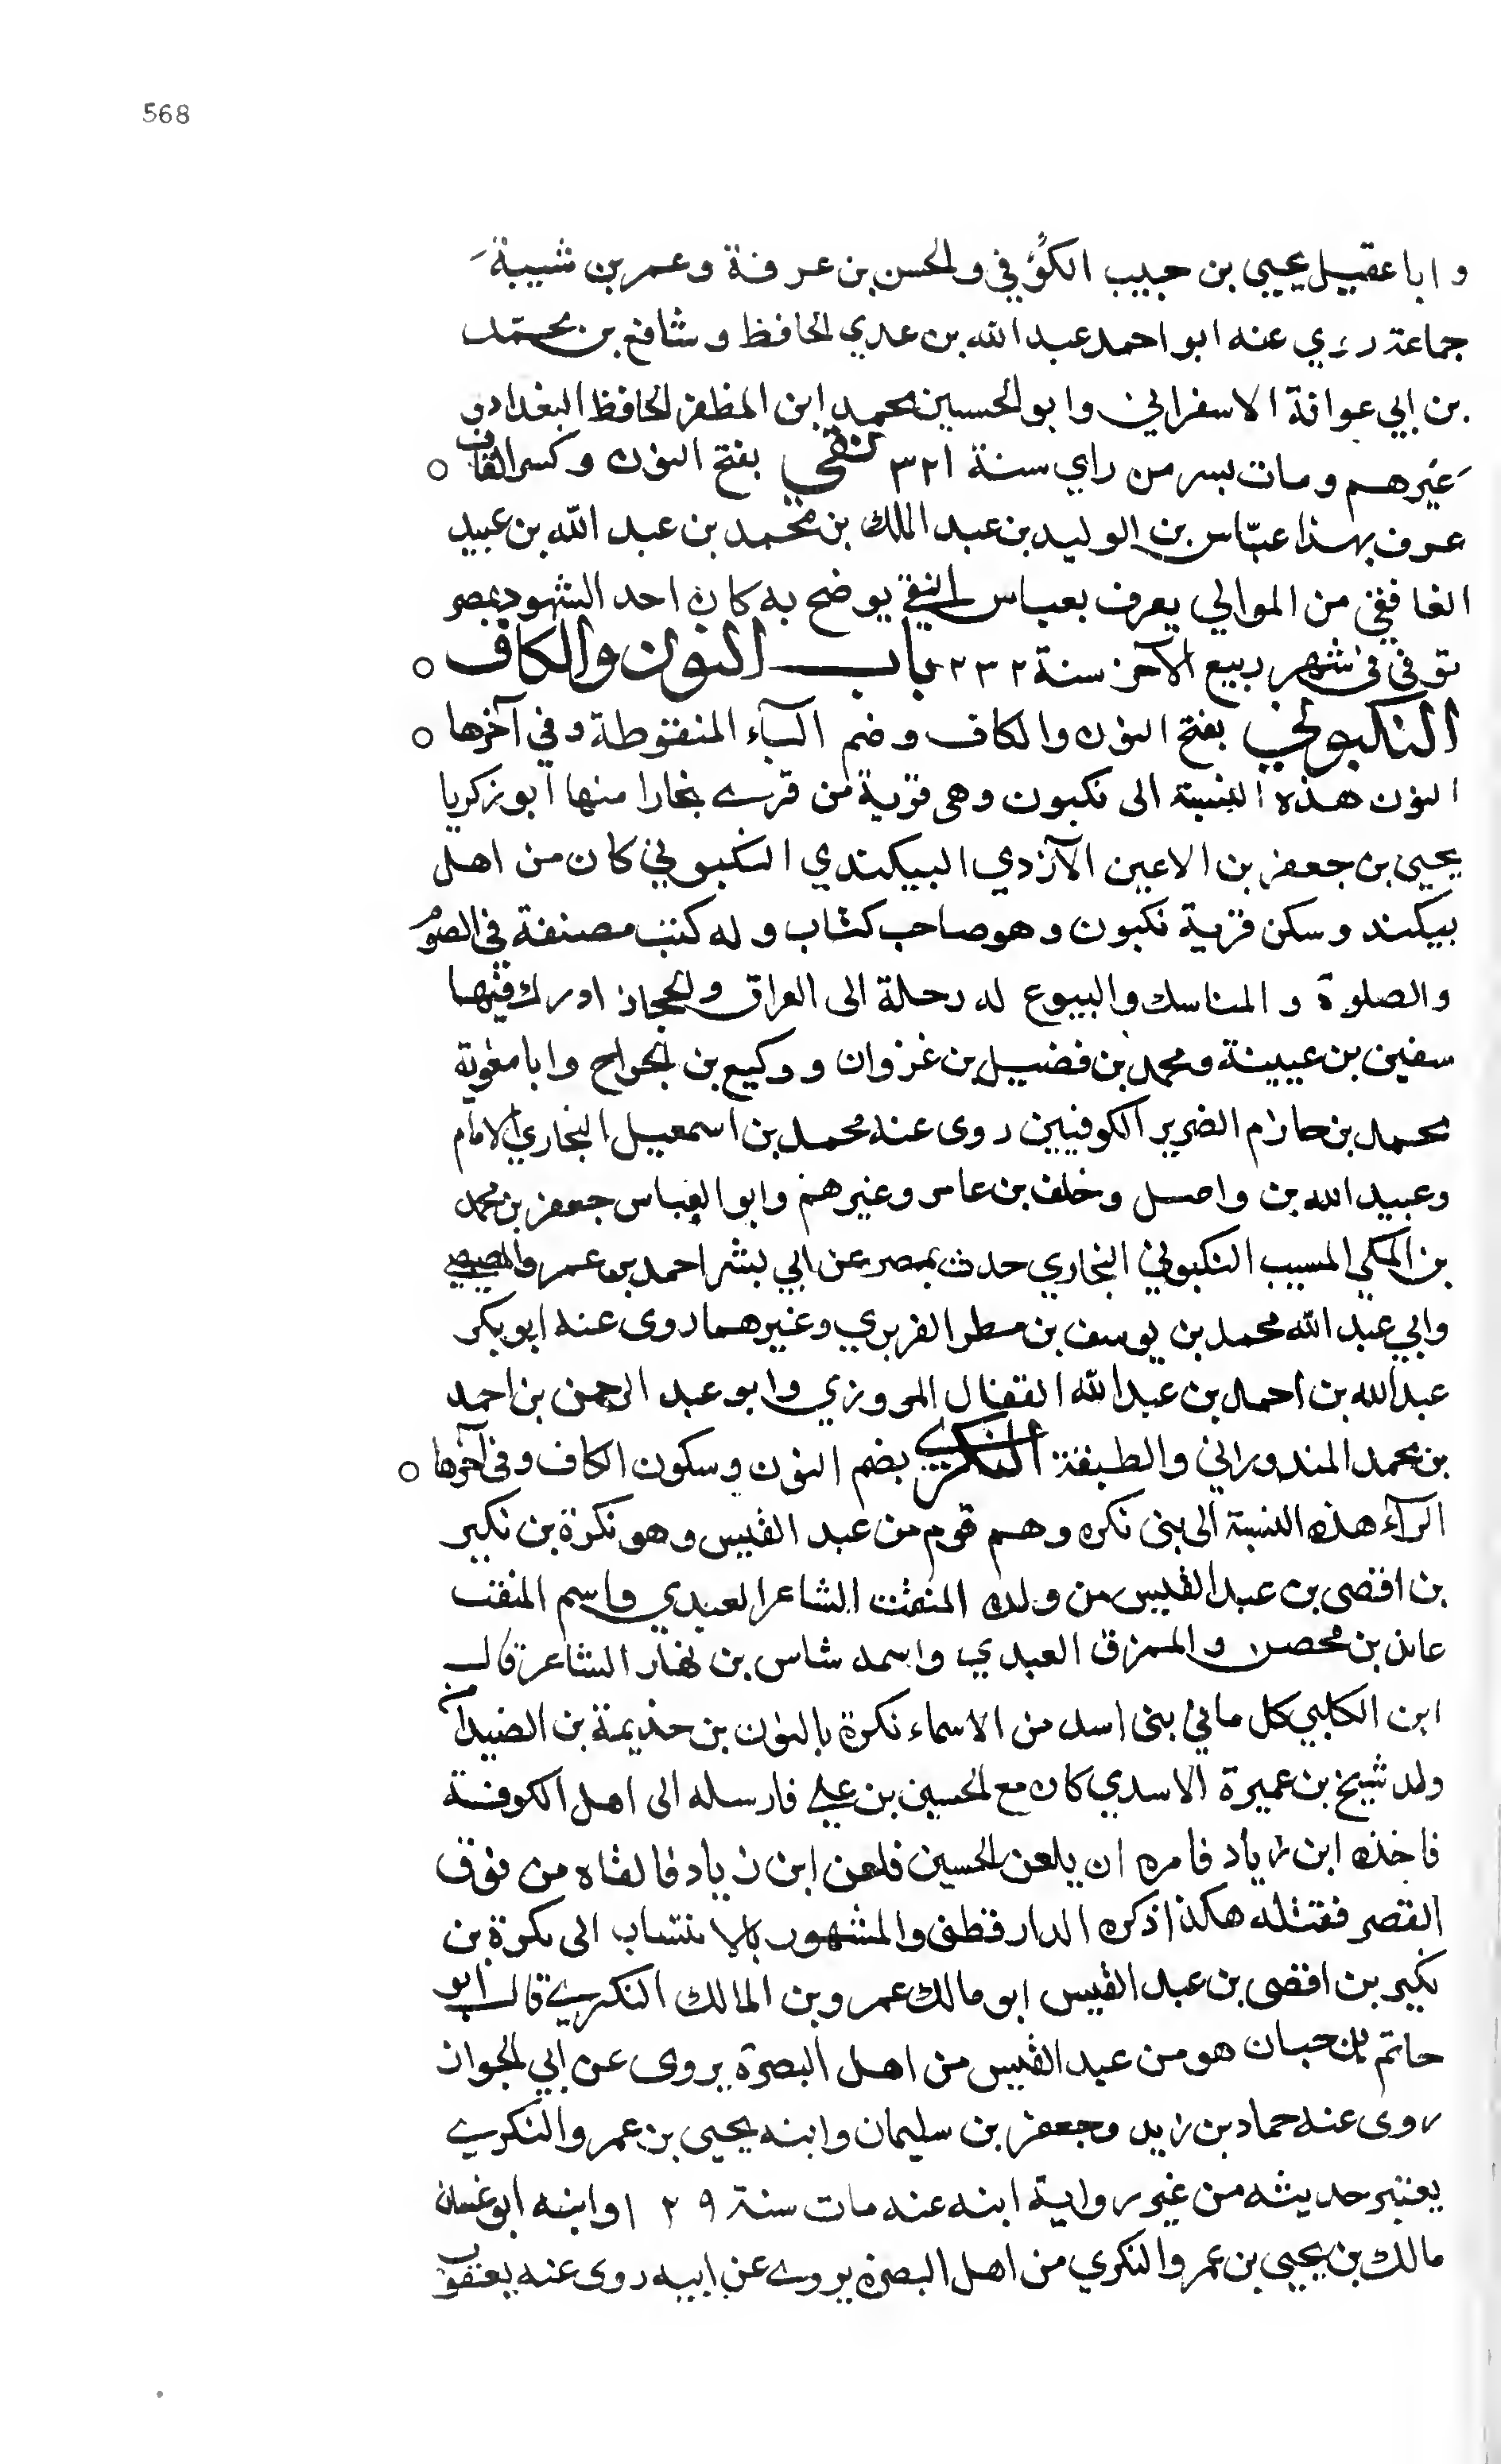 568
و ابا عقيل يحيى بن حبيب الكوفي والحسن بن عرفة وعمر بن شيبة َ
جماعة روي عنه ابو احمد عبد الله بن عدي الحافظ و شافع بن محمّد
بن ابي عوانة الاسفرايني وابو الحسين محمد ابن المظفر الحافظ البغدادي و
َغيرهم ومات بسر من راي سنة ٣٢١ النقي بفتح النون وكسر القاف ○
عرف بهذا عبّاس بن الوليد بن عبد الملك بن محمد بن عبد الله بن عبيد
الغافقي من الموالي يعرف بعباس النقي يوضح به كان احد الشهود بمصر
توفي في شهر ربيع الآخر سنة ٢٣٢ باب النون والكاف ○
النكبوني بفتح النون والكاف وضم الباء المنقوطة وفي آخرها ○
النون هذه النسبة الى نكبون وهى قرية من قرى بخارا منها ابو زكريا
يحيى بن جعفر بن الاعين الآزدي البيكندي النكبوني كان من اهل
بيكند وسكن قرية نكبون وهو صاحب كتاب وله كتب مصنفة في الصوم
والصلوة و المناسك والبيوع له رحلة الى العراق والحجاز ادرك فيها
سفين بن عيينة ومحمد بن فضيل بن غزوان ووكيع بن الجراح وابا معوية
محمد بن حازم الضرير الكوفيين روى عنه محمد بن اسمعيل البخاري الامام
وعبيد الله بن واصل وخلف بن عامر وغيرهم وابو العباس جعفر بن محمد
بن المكي المسيب النكبوني البخاري حدث بمصر عن ابي بشر احمد بن عمرو المصيصي
وابي عبد الله محمد بن يوسف بن مطر الفربري وغيرهما روى عنه ابو بكر
عبد الله بن احمد بن عبد الله القفال المروزي وابو عبد الرحمن بن احمد
بن محمد المندوراني والطبقة النكري بضم النون وسكون الكاف وفى آخرها ○
الرآء هذه النسبة الى بنى نكره وهم قوم من عبد القيس وهو نكرة بن نكير
بن افصى بن عبد القيس من ولده المثقب الشاعر العبدي واسم المثقب
عائذ بن محصن والممزق العبدي واسمه شاس بن نهار الشاعر قال
ابن الكلبي كل ما في بنى اسد من الاسماء نكرة بالنون بن حذيمة بن الصيدا من
ولد شيخ بن عميرة الاسدي كان مع الحسين بن علي فارسله الى اهل الكوفة
فاخذه ابن زياد فامره ان يلعن الحسين فلعن ابن زياد فالقاه من فوق
القصر فقتله هكذا ذكره الدارقطنى والمشهور بالانتساب الى نكرة بن
نكير بن افصى بن عبد القيس ابو مالك عمرو بن المالك النكري قال ابو
حاتم بن حبان هو من عبد القيس من اهل البصرة يروى عن ابي الجواز
روى عنه حماد بن زيد وجعفر بن سليمان وابنه يحيى بن عمرو النكري
يعتبر حديثه من غير رواية ابنه عنه مات سنة ١٢٩ وابنه ابو غسان
مالك بن يحيى بن عمرو النكري من اهل البصرة يروى عن ابيه روى عنه يعقوب